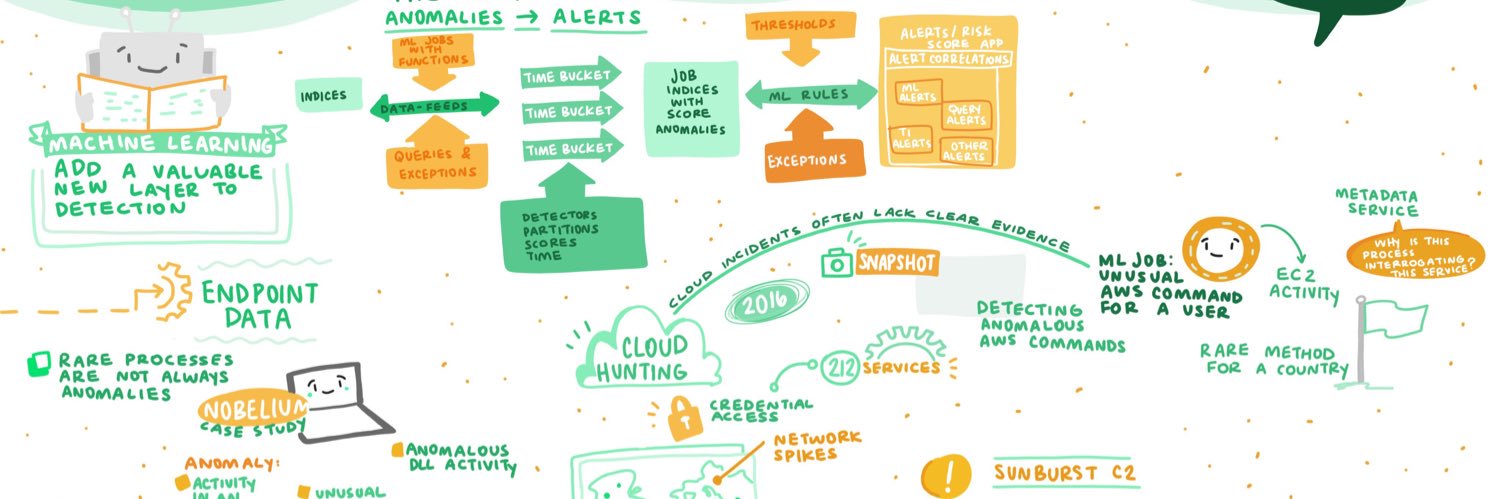 ANOMALIES → ALERTS
MACHINE LEARNING
ADD A VALUABLE
NEW LAYER TO
DETECTION
INDICES
ML JOBS
WITH
FUNCTIONS
DATA-FEEDS
QUERIES &
EXCEPTIONS
TIME BUCKET
TIME BUCKET
TIME BUCKET
DETECTORS
PARTITIONS
SCORES
TIME
JOB
INDICES
WITH
SCORE
ANOMALIES
THRESHOLDS
ML RULES
EXCEPTIONS
ALERTS/RISK
SCORE APP
ALERT CORRELATIONS
ML
ALERTS
QUERY
ALERTS
TI
ALERTS
OTHER
ALERTS
ENDPOINT
DATA
RARE PROCESSES
ARE NOT ALWAYS
ANOMALIES
NOBELIUM
CASE STUDY
ANOMALY:
ACTIVITY
IN AN
UNUSUAL
ANOMALOUS
DLL ACTIVITY
CLOUD INCIDENTS OFTEN LACK CLEAR EVIDENCE
CLOUD
HUNTING
2016
SNAPSHOT
212 SERVICES
CREDENTIAL
ACCESS
NETWORK
SPIKES
DETECTING
ANOMALOUS
AWS COMMANDS
ML JOB:
UNUSUAL
AWS COMMAND
FOR A USER
EC2
ACTIVITY
METADATA
SERVICE
WHY IS THIS
PROCESS
INTERROGATING
THIS SERVICE?
RARE METHOD
FOR A COUNTRY
!
SUNBURST C2